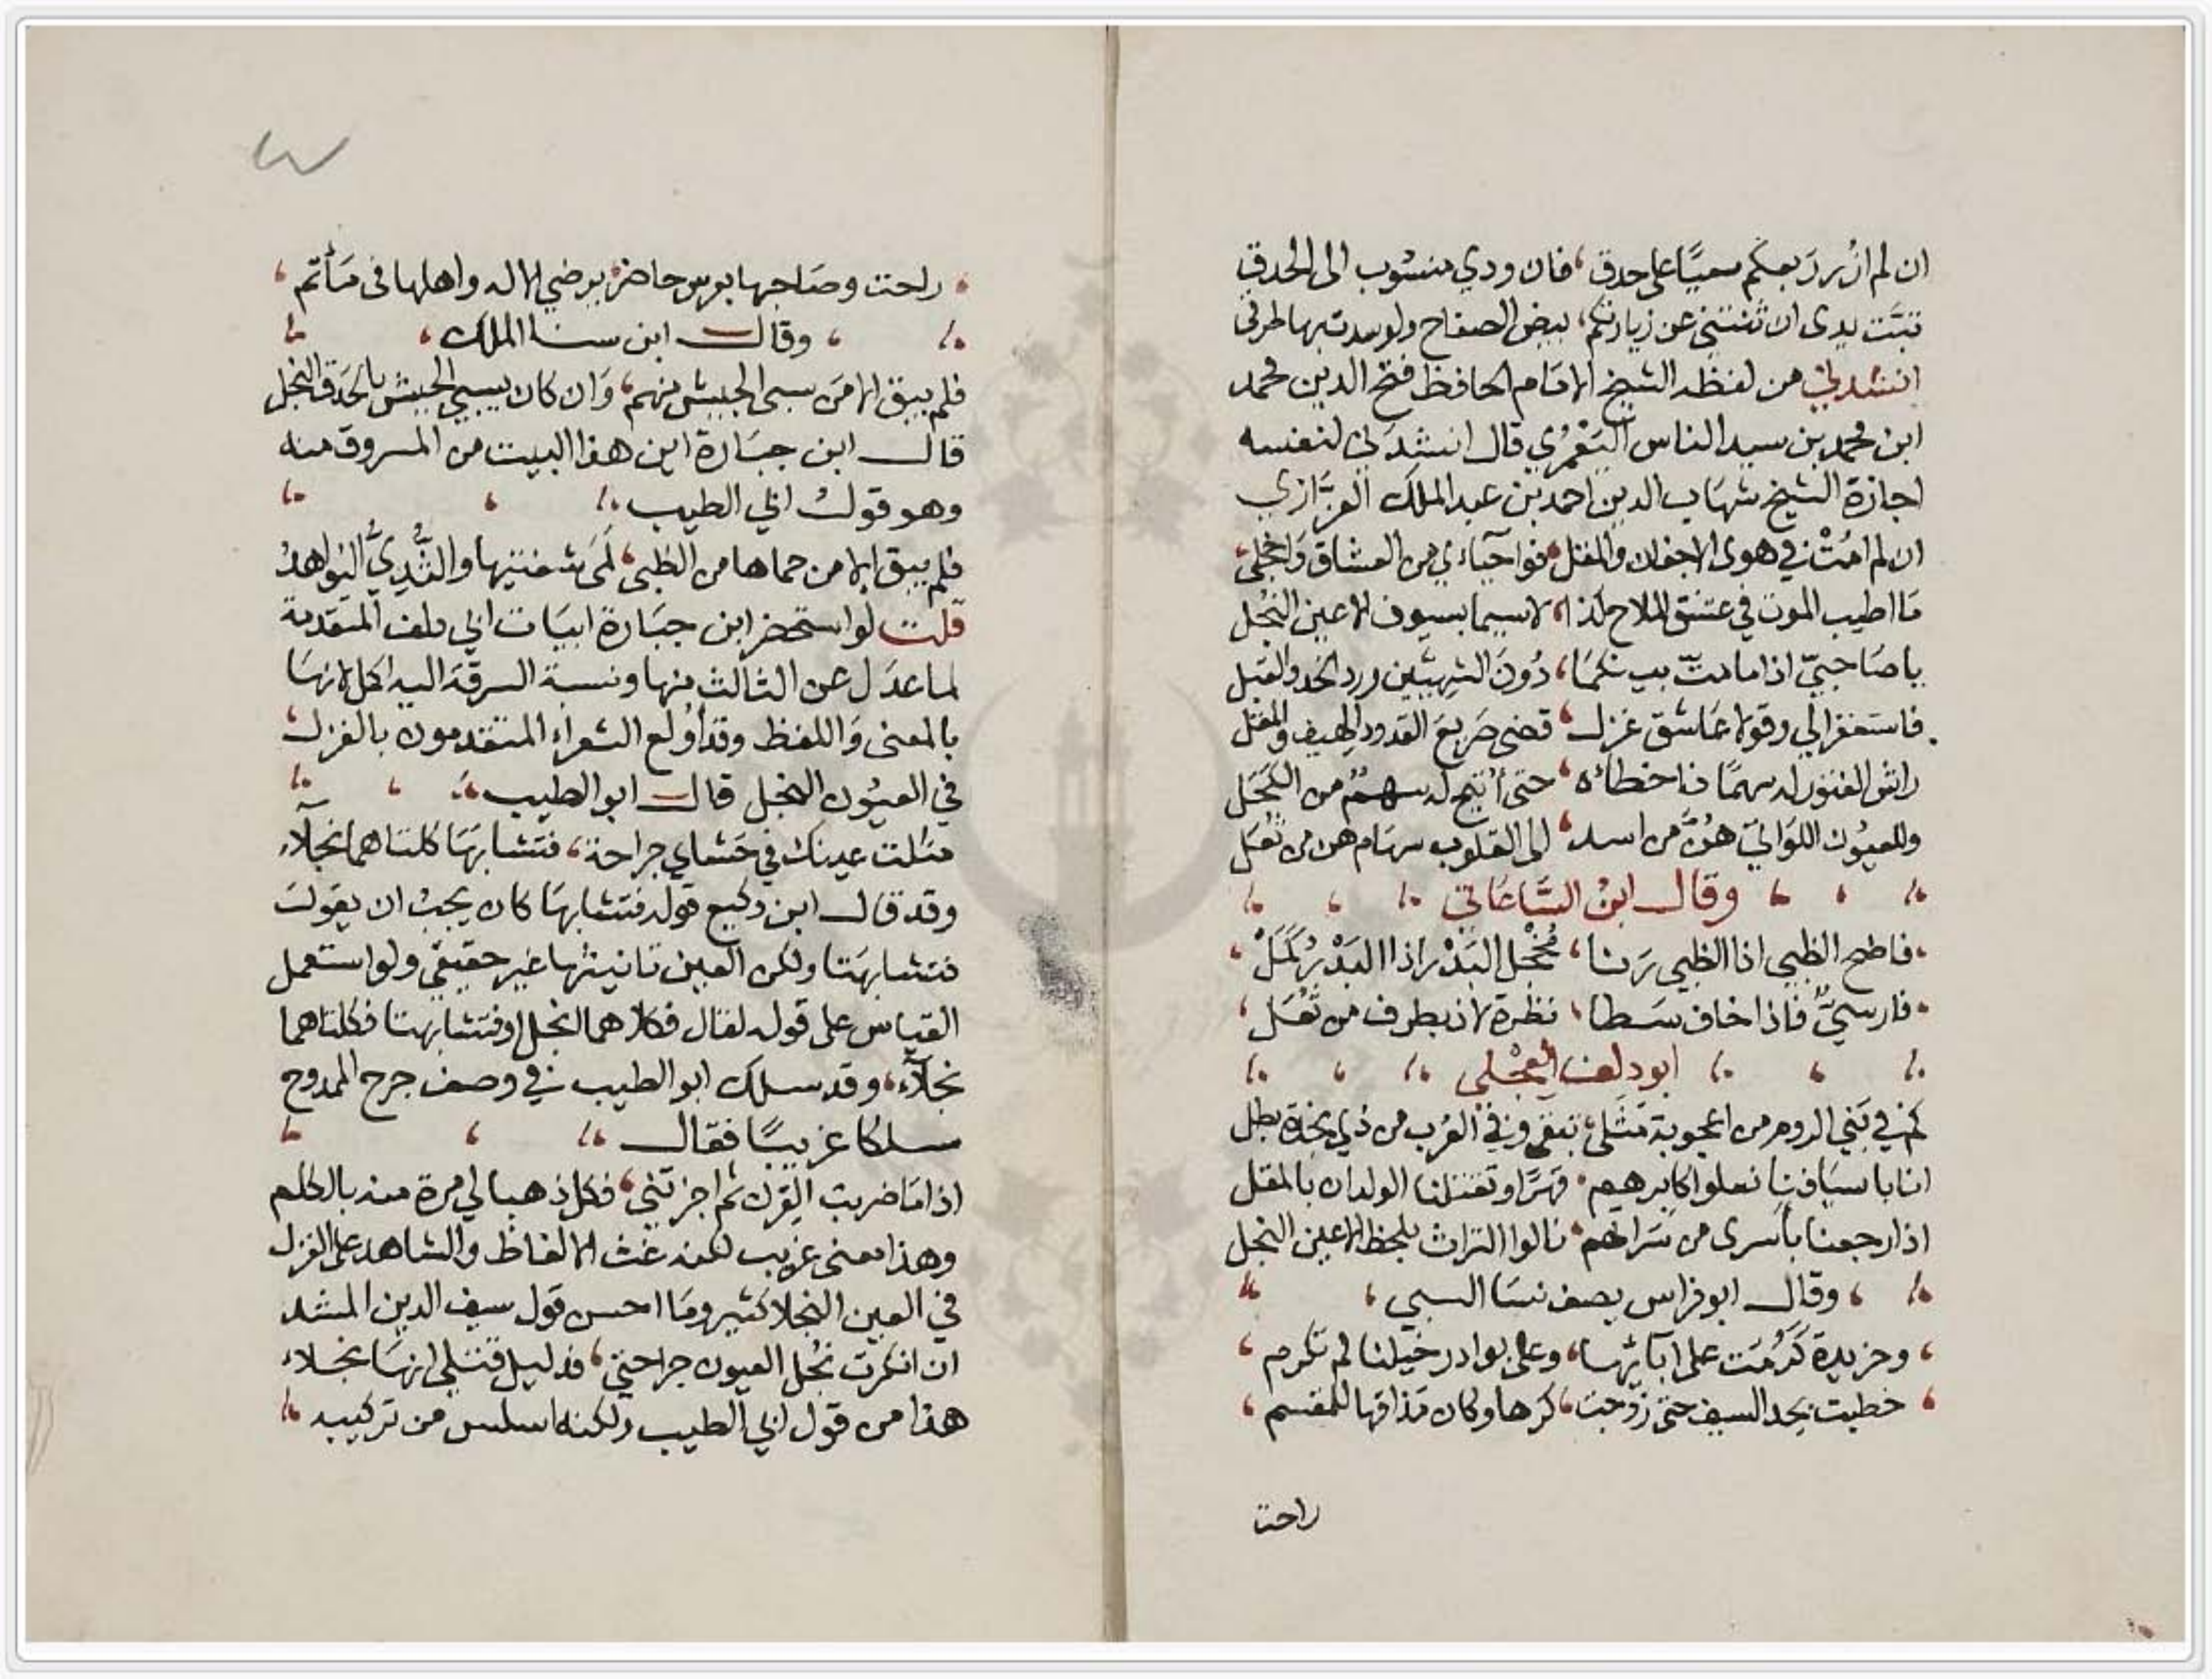 ان لم ازر ربعكم سعيًا على حدق، فان ودي منسوب الى الحدق
تبّت يدى ان ثنتنى عن زيارتكم، بيض الصفاح ولو سدت بها طرقى
انشدني من لفظه الشيخ الامام الحافظ فتح الدين محمد
ابن محمد بن سيد الناس اليَعْمُري قال انشدني لنفسه
اجازة الشيخ شهاب الدين احمد بن عبد الملك العزّازي
ان لم امُتْ في هوى الاجفان والمقل، فوا حيآءي من العشاق واخجلى،
مَا اطيب الموت في عشق الملاح كذا، لاسيما بسيوف الاعين النُجُل
يا صَاحبيّ اذا ما متّ بينكمَا، دُونَ الشهيّين ورد الخد والقبل
فاستغفرا لي وقولا عَاشق غزل، قضى صَريعَ القدود الهيف والمقل
راش الفتور له سهمًا فاخطأه، حتى أتيح له سهمٌ من الكَحَل
وللعيُون اللوَاتي هُنَّ من اسد، الى القلوب سهَام هن من ثُعَل
وقال ابنُ السَّاعَاتي
فاطم الظبي اذا الظبي رَنا، مُخْجل البَدْر اذا البَدْر كَمَلْ،
فارسيٌّ فاذا خاف سَطا، نظرة لاذ بطرف من ثُعَل،
ابو دلف العِجْلى
كم في بَني الروم من اعجوبة مَثَلى، تبقى وفي العُرب من ذي نجدة بطل
انا باسيَافنا نعلوا اكابرهم، قهرًا وتقتلنا الولدان بالمقل
اذا رجعنا بأسرى من سَراتهم، نالوا التراث بلحظ الاعين النجل
وقال ابو فراس يصف نسَا السبي،
، وخريدة كَرُمَت على آبائهَا، وعلى بوادر خيلنا لم تكرم،
، خطبت بحد السيف حتى زوّجت، كرها وكان مَذاقها للمقسم،
راحت
، راحت وصَاحبها بعرس حاضر، يرضي الاله واهلها فى مَأتم،
، وقال ابن سنا الملك،
فلم يبق الا مَن سبى الجيش منهم، وَان كان يسبي الجيش بالحَدق النجل
قال ابن جبَارة اين هذا البيت من المسروق منه
وهو قول ابي الطيب
فلم يبق إلا من حماها من الظبى، لَمَى شفتيها والثُّدِيُّ النواهدُ
قلت لو استحضر ابن جبَارة ابيَات ابي دلف المتقدمة
لما عدَل عن الثالث منها ونسبة السرقة اليه اكمل لانهَا
بالمعنى وَاللفظ وقد أولع الشعراء المتقدمون بالغزل
في العيُون النجل قال ابو الطيب
مثلت عينك في حَشاي جراحة، فتشابهَا كلتاهما نجلآء
وقد قال ابن وكيع قوله فتشابهَا كان يجبُ ان يقولَ
فتشابهَتا ولكن العين تانيثها غير حقيقي ولو استعمل
القياس على قوله لقال فكلاهما انجل او فتشابهتا فكلتاهما
نجلآء، وقد سلك ابو الطيب في وصف جرح الممدوح
سلكا غريبًا فقال
اذا مَا ضربت القِرن ثم اجزتنى، فكل ذهبا لي مرة منه بالكلم
وهذا معنى غريب لكنه غث الالفاظ والشاهد على الغزل
في العين النجلا كثير ومَا احسن قول سيف الدين المشد
ان انكرت نُجْل العيون جراحتي، فدليل قتلي انهَا نجلاء
هذا من قول ابي الطيب ولكنه اسلس من تركيبه